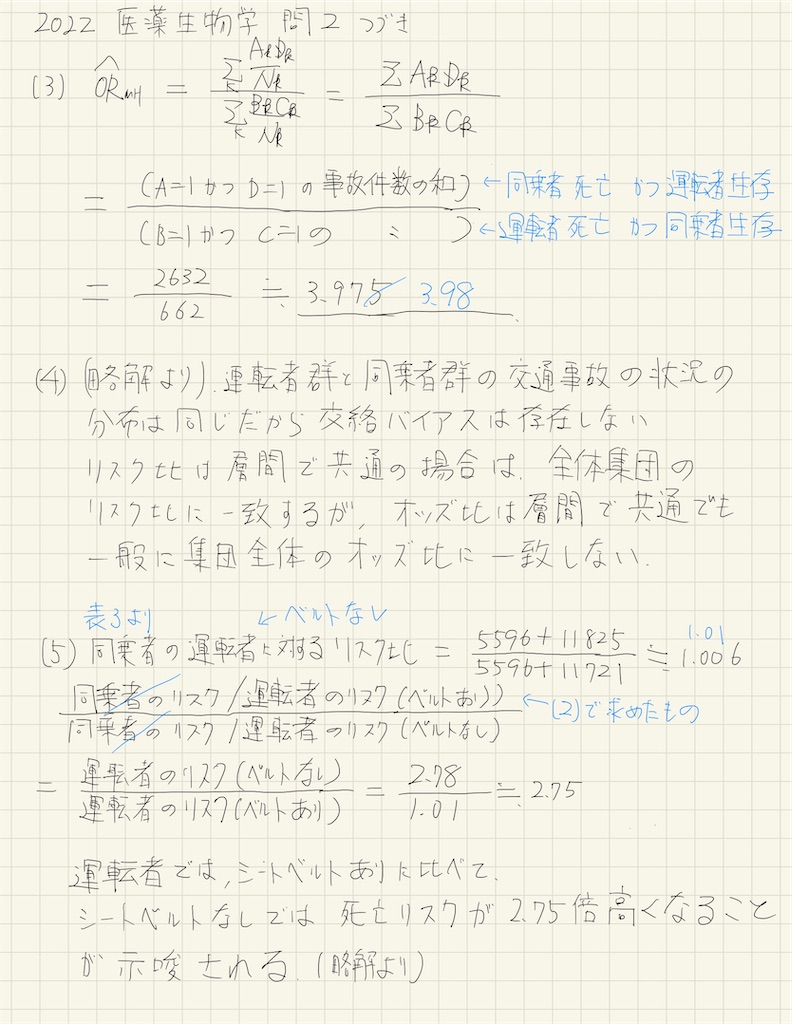 2022 医薬生物学 問2 つづき
(3) ÔR_MH = Σ_k A_kD_k/N_k / Σ_k B_kC_k/N_k = Σ A_kD_k / Σ B_kC_k
= (A=1かつD=1の事故件数の和) ←同乗者死亡かつ運転者生存
(B=1かつC=1の 〃 ) ←運転者死亡かつ同乗者生存
= 2632/662 ≒ 3.975 3.98
(4) (略解より). 運転者群と同乗者群の交通事故の状況の
分布は同じだから交絡バイアスは存在しない
リスク比は層間で共通の場合は、全体集団の
リスク比に一致するが、オッズ比は層間で共通でも
一般に集団全体のオッズ比に一致しない.
表3より ←ベルトなし
(5) 同乗者の運転者に対するリスク比 = 5596+11825 / 5596+11721 ≒ 1.006 1.01
同乗者のリスク/運転者のリスク(ベルトあり)) ←(2)で求めたもの
同乗者のリスク/運転者のリスク(ベルトなし)
= 運転者のリスク(ベルトなし) / 運転者のリスク(ベルトあり) = 2.78/1.01 ≒ 2.75
運転者では, シートベルトありに比べて、
シートベルトなしでは 死亡リスクが 2.75倍高くなること
が示唆される. (略解より)